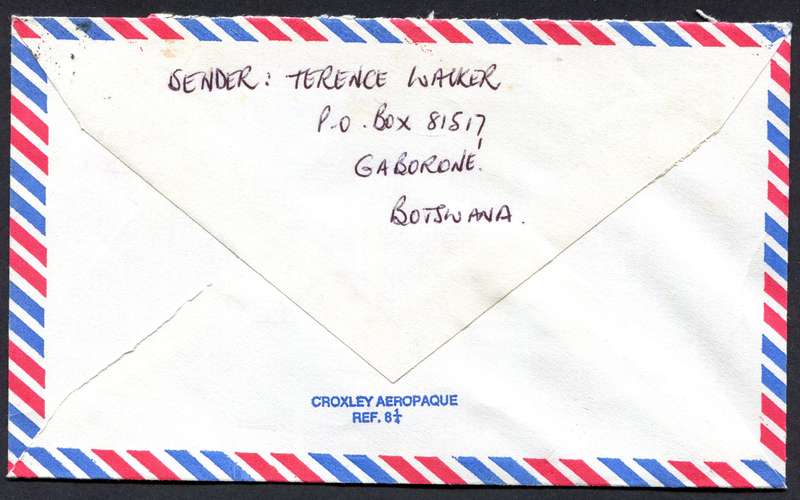 SENDER: TERENCE WALKER
P.O. BOX 81517,
GABORONE.
BOTSWANA.
CROXLEY AEROPAQUE
REF. 8¼